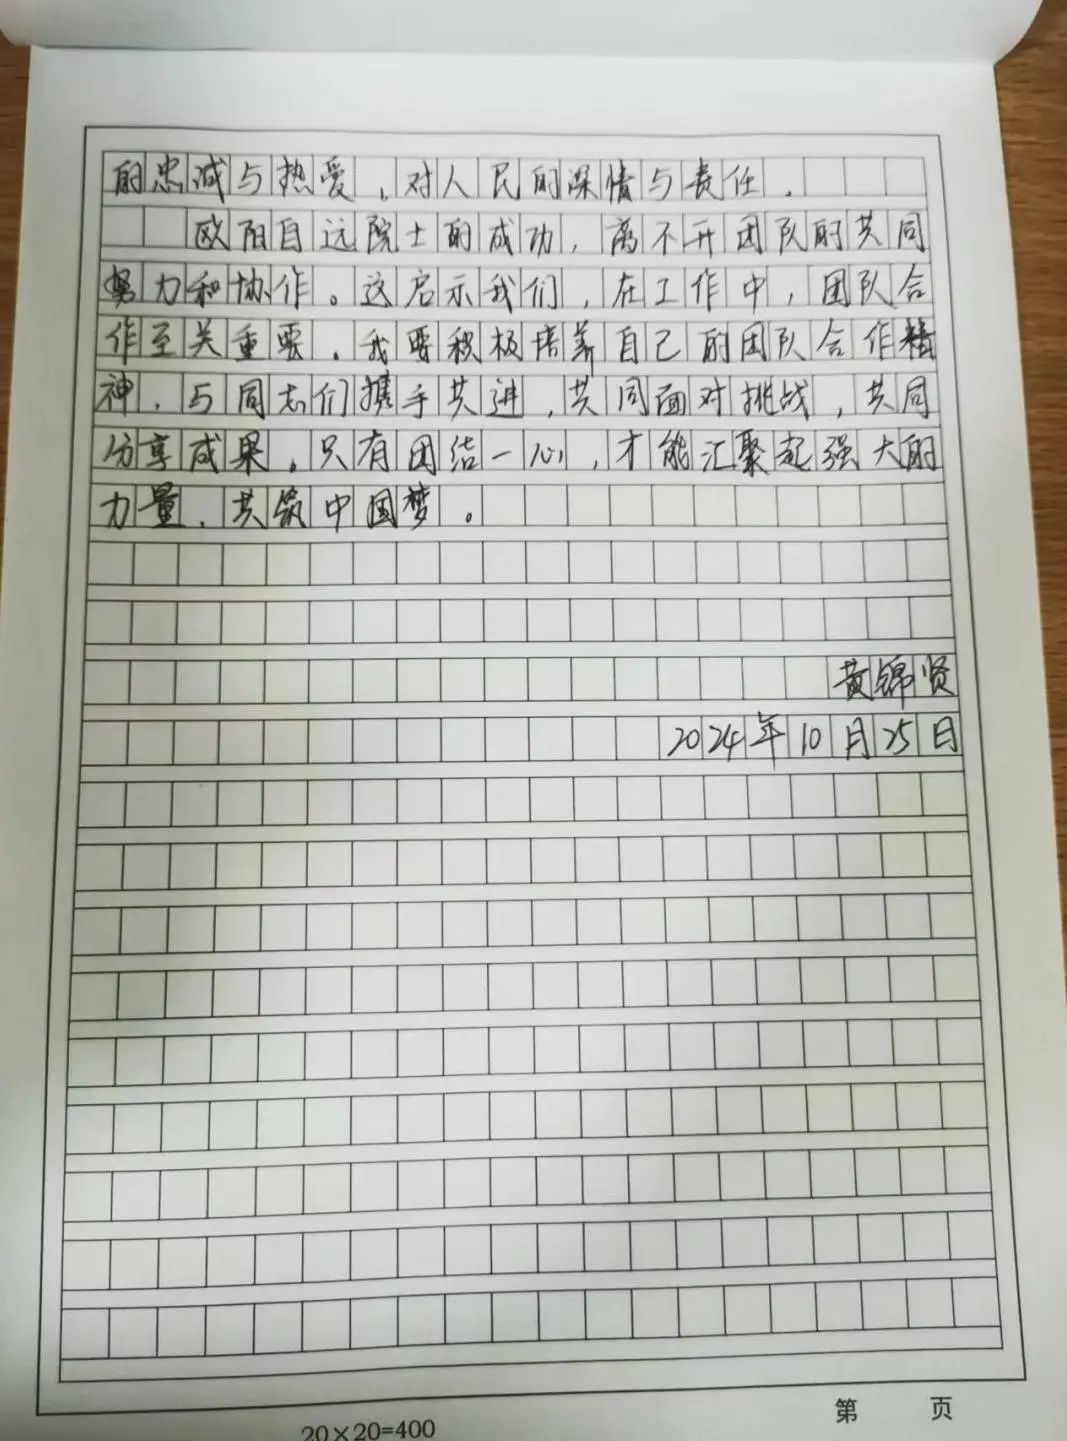 的忠诚与热爱，对人民的深情与责任．
欧阳自远院士的成功，离不开团队的共同
努力和协作。这启示我们，在工作中，团队合
作至关重要．我要积极培养自己的团队合作精
神．与同志们携手共进，共同面对挑战，共同
分享成果．只有团结一心，才能汇聚起强大的
力量．共筑中国梦。
黄锦贤
2024年10月25日
第 页
20×20=400